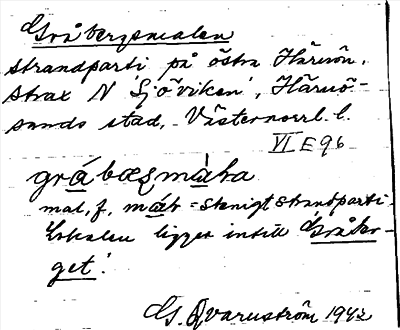 Gråbergsmalen
strandparti på östra Härnön,
strax N 'Sjöviken', Härnö-
sands stad, Västernorrl. l.
VI E 96
mal, f. = stenigt strandparti.
Lokalen ligger intill Gråber-
get.
G. Qvarnström 1942